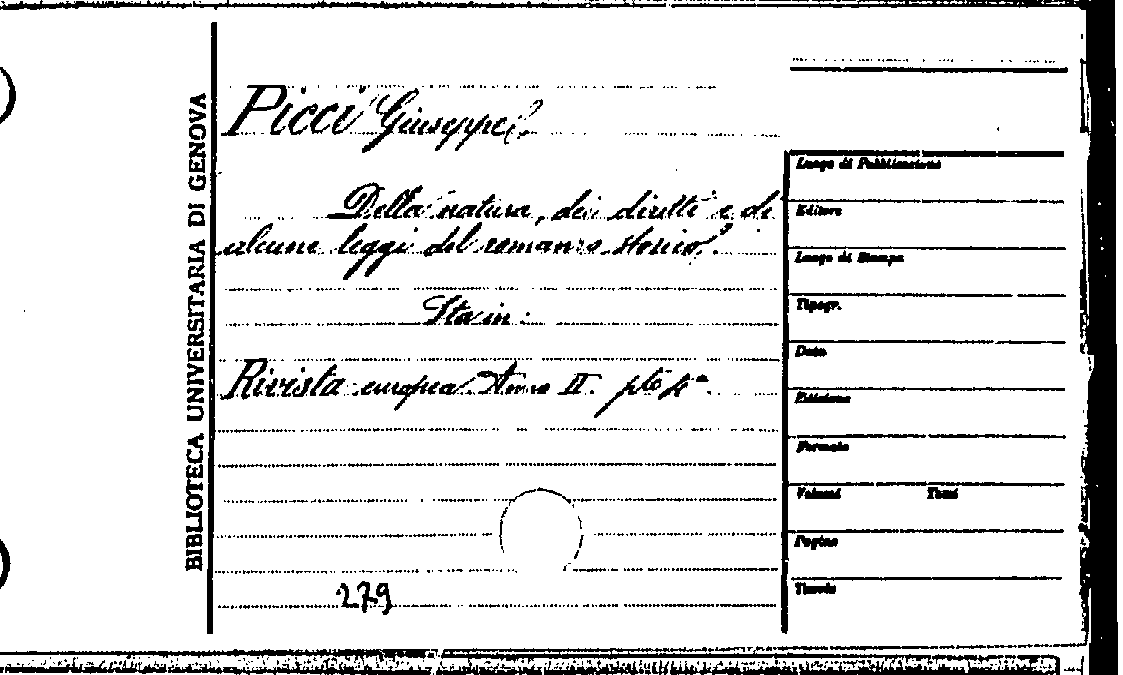 BIBLIOTECA UNIVERSITARIA DI GENOVA
Picci Giuseppe.
Della natura, dei diritti e di
alcune leggi del romanzo storico.
Sta in:
Rivista europea. Anno II. pte
279
Luogo di Pubblicazione
Editore
Luogo di Stampa
Tipogr.
Data
Edizione
Formato
Volumi Tomi
Pagine
Tavole